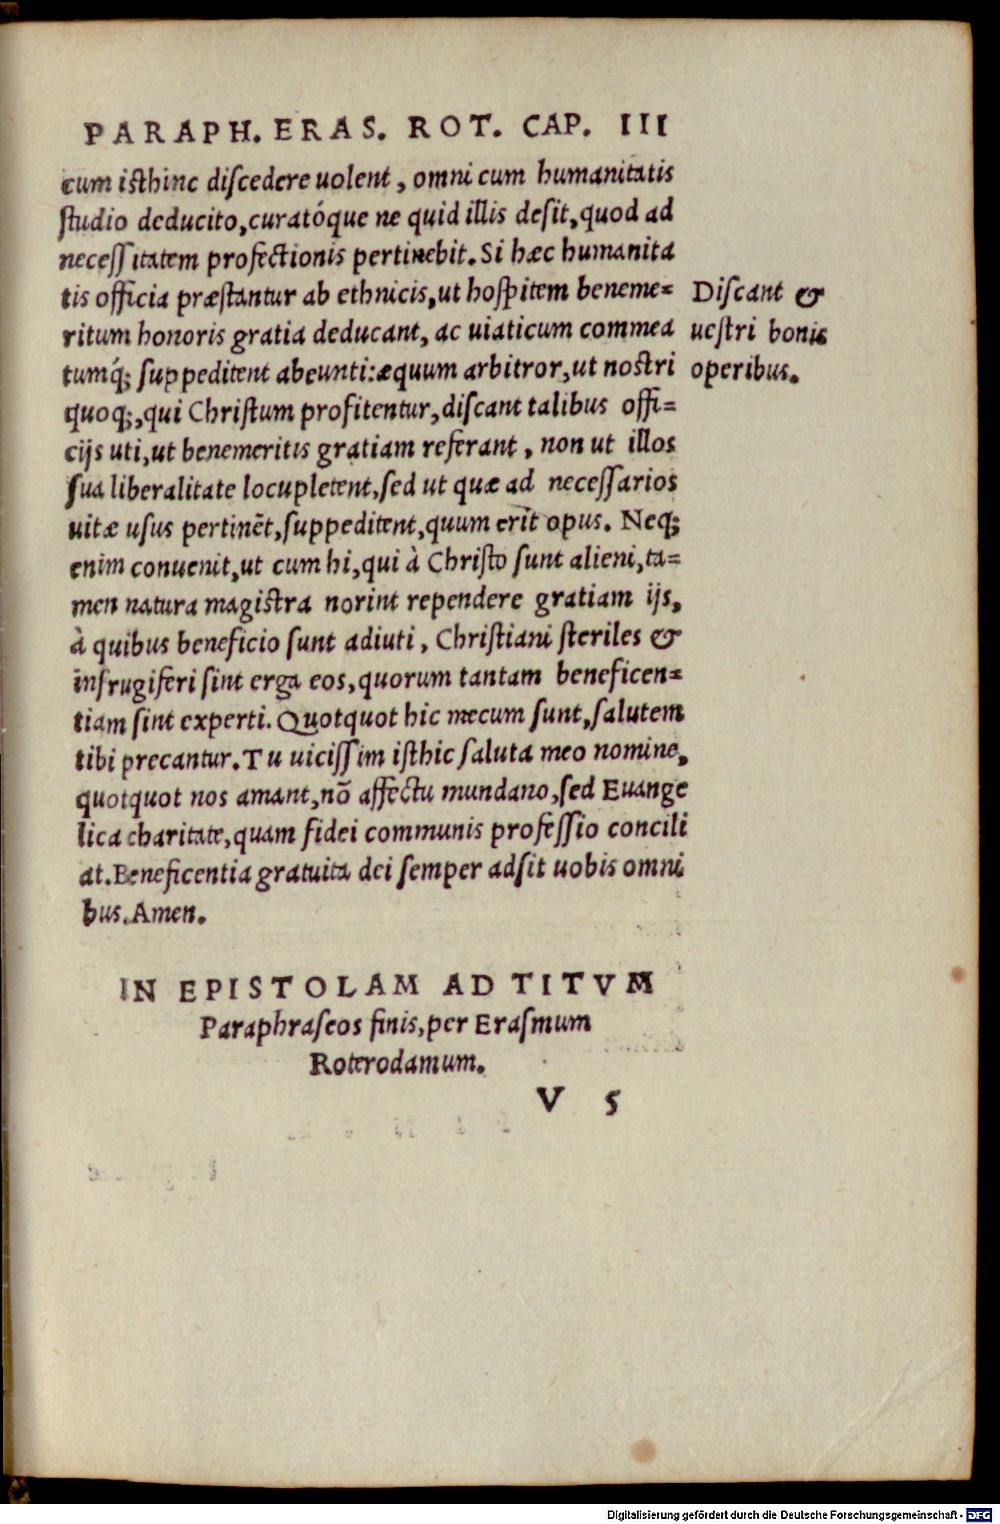 PARAPH. ERAS. ROT. CAP. III
cum isthinc discedere uolent, omni cum humanitatis
studio deducito, curatóque ne quid illis desit, quod ad
necessitatem profectionis pertinebit. Si hæc humanita
tis officia præstantur ab ethnicis, ut hospitem beneme=
ritum honoris gratia deducant, ac uiaticum commea
tumq́; suppeditent abeunti: æquum arbitror, ut nostri
quoq;, qui Christum profitentur, discant talibus offi=
cijs uti, ut benemeritis gratiam referant, non ut illos
sua liberalitate locupletent, sed ut quæ ad necessarios
uitæ usus pertinēt, suppeditent, quum erit opus. Neq;
enim conuenit, ut cum hi, qui à Christo sunt alieni, ta=
men natura magistra norint rependere gratiam ijs,
à quibus beneficio sunt adiuti, Christiani steriles &
infrugiferi sint erga eos, quorum tantam beneficen=
tiam sint experti. Quotquot hic mecum sunt, salutem
tibi precantur. Tu uicissim isthic saluta meo nomine,
quotquot nos amant, nō affectu mundano, sed Euange
lica charitate, quam fidei communis professio concili
at. Beneficentia gratuita dei semper adsit uobis omni
bus. Amen.
Discant &
uestri bonis
operibus.
IN EPISTOLAM AD TITVM
Paraphraseos finis, per Erasmum
Roterodamum.
V 5
Digitalisierung gefördert durch die Deutsche Forschungsgemeinschaft - DFG